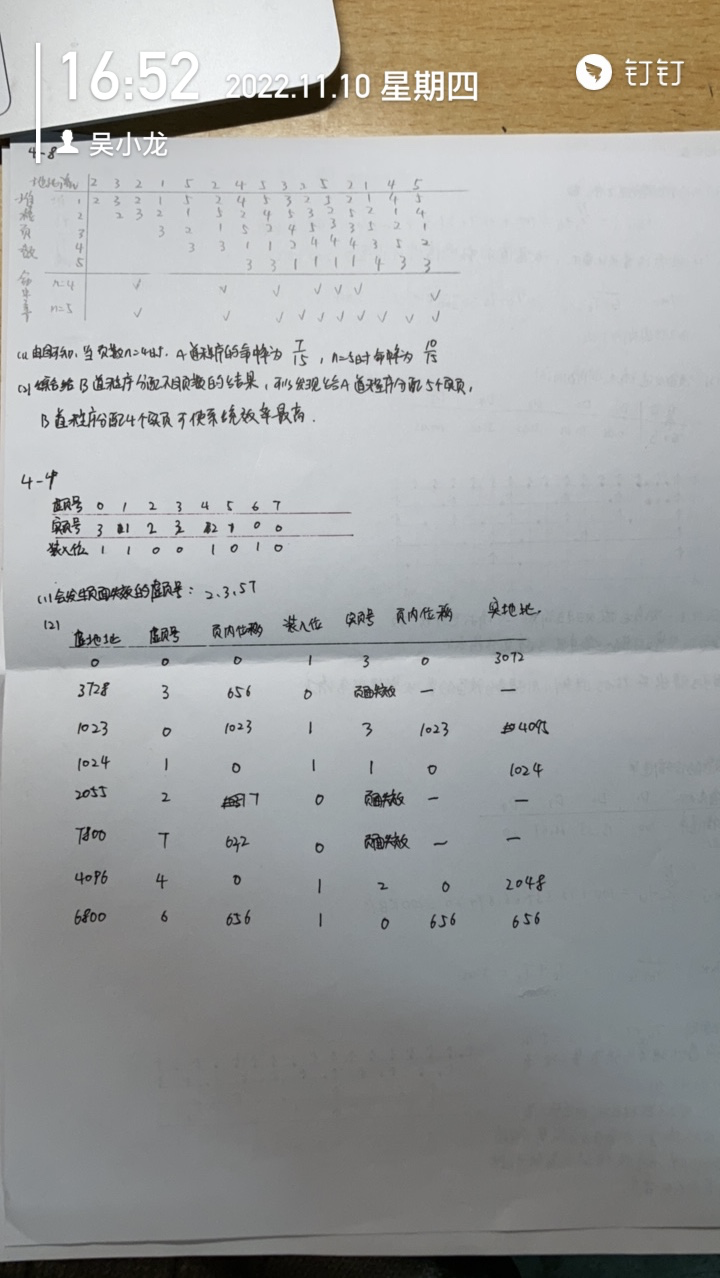 16:52 2022.11.10 星期四
钉钉
吴小龙
4-8
2 3 2 1 5 2 4 5 3 2 5 2 1 4 5
堆 1 2 3 2 1 5 2 4 5 3 2 5 2 1 4 5
2 2 3 2 1 5 2 4 5 3 2 5 2 1 4
页 3 3 2 1 5 2 4 5 3 3 5 2 1
数 4 3 3 1 1 2 4 4 4 3 5 2
5 3 3 1 1 1 1 4 3 3
n=4 √ √ √ √ √ √ √
n=5 √ √ √ √ √ √ √ √ √ √
(1) 由图可知,当页数n=4时,A道程序的命中率为 7/15 , n=5时命中率为 10/15
(2) 综合给B道程序分配不同页数的结果,可以发现给A道程序分配5个实页,
B道程序分配4个实页可使系统效率最高.
4-9
虚页号 0 1 2 3 4 5 6 7
实页号 3 1 2 3 2 1 0 0
装入位 1 1 0 0 1 0 1 0
(1) 会发生页面失效的虚页号: 2.3.5 7
(2)
虚地址 虚页号 页内位移 装入位 实页号 页内位移 实地址
0 0 0 1 3 0 3072
3728 3 656 0 页面失效 — —
1023 0 1023 1 3 1023 4095
1024 1 0 1 1 0 1024
2055 2 7 0 页面失效 — —
7800 7 632 0 页面失效 — —
4096 4 0 1 2 0 2048
6800 6 656 1 0 656 656